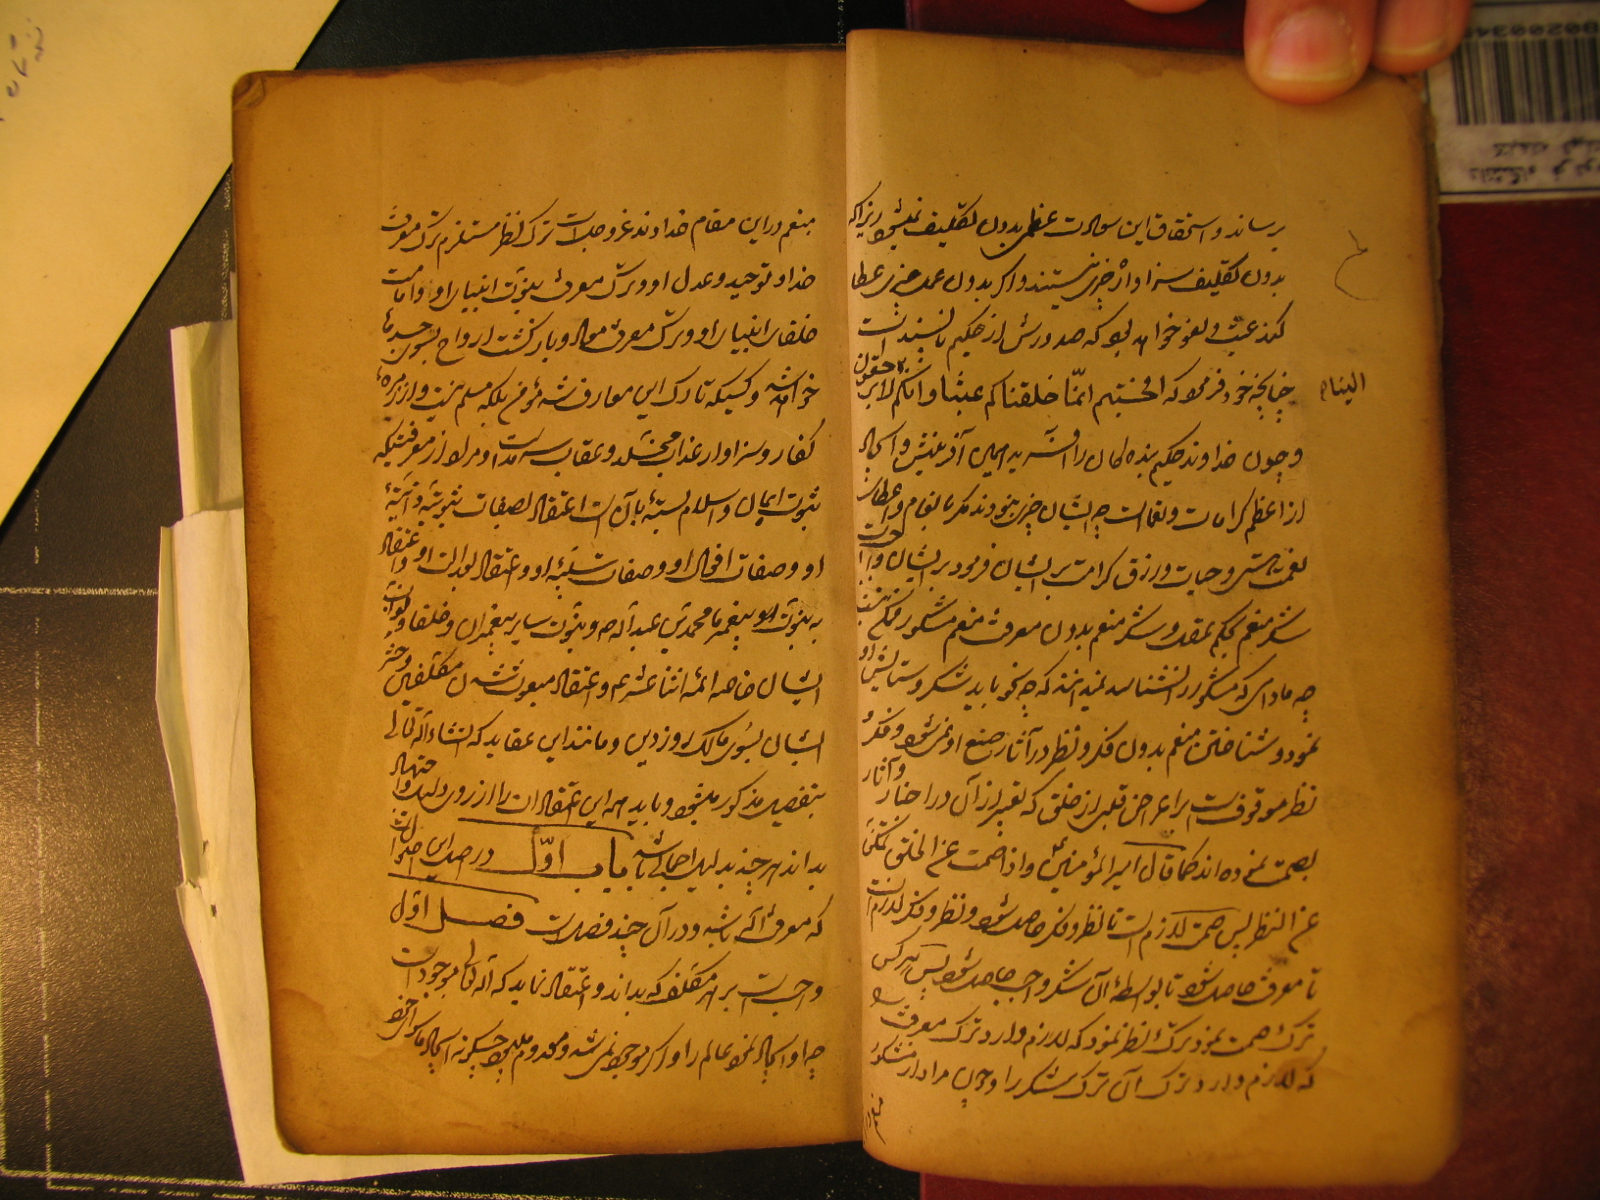 برساند و استحقاق این سعادت عظمی بدون تکلیف نمیشود زیرا که
بدون تکلیف سزاوار چیزی نیستند و اگر بدون عمل چیزی عطا
کند عبث و لغو خواهد بود که صدورش از حکیم ناپسند است
چنانچه خود فرموده که افحسبتم انّما خلقناکم عبثا و انّکم الینا لا ترجعون
و چون خداوند حکیم بنده کان را آفریده همین آفرینش و ایجاد
از اعظم کرامات و نعمات چه ایشان چیزی نبودند مگر بانعام و عطای
نعمت هستی و حیات و رزق کرامت بر ایشان فرمود بر ایشان واجب
شکر منعم بحکم عقل و شکر منعم بدون معرفت منعم مشکور ممکن نیست
چه مادامی که مشکور را نشناسد نمیدانند که چه نحو باید شکر و ستایش او
نمود و شناختن منعم بدون فکر و نظر در آثار صنع او نمی شود و فکر و
نظر موقوفست بر اعراض قلبی از خلق که تعبیر از آن در اخبار و آثار
بصمت نموده اند کما قال امیر المؤمنین واذا صمت عن الخلق تمکن
عن النظر پس صمت لازم است تا نظر و فکر حاصل شود و نظر و فکر لازم است
تا معرفت حاصل شود تا بواسطه آن شکر واجب حاصل شود پس هر کس
ترک صمت نمود ترک نظر نمود که لازم دارد ترک معرفت
که لازم دارد ترک آن ترک شکر را و چون مراد از مشکور
منعم در این مقام خداوند عزوجل است ترک نظر مستلزم ترک معرفت
خدا و توحید و عدل او و ترک معرفت بنبوّت انبیای او و امامت
خلفای انبیای او و ترک معرفت معاد و بازگشت ارواح بسوی
خواهد شد و کسیکه تارک این معارف شد مؤمن بلکه مسلم نیست و از زمره
کفار و سزاوار عذاب مخلد و عقاب است و مراد از معرفتیکه
ثبوت ایمان و اسلام بسته بآن است اعتقاد بصفات ثبوتیه ذاتیه
او و صفات افعال او و صفات سلبیه او و اعتقاد بعدالت او و اعتقاد
به نبوّت پیغمبر ما محمد بن عبد الله ص و نبوّت سایر پیغمبران و خلفا و
ایشان خاصه ائمه اثنا عشر ع و اعتقاد مبعوث شدن مکلفین و حشر
ایشان بسوی مالک روز دین و مانند این عقاید که انشاء الله تعالی
بتفصیل مذکور میشود و باید همه این اعتقادات را از روی دلیل و اجتهاد
بداند هر چند بدلیل اجمالی باشد باب اوّل در اصل این
که معرفت الله باشد و در آن چند فصل است فصل اوّل
واجب است بر هر مکلف که بداند و اعتقاد نماید که الله تعالی موجود است
چه او ایجاد نمود عالم را و اگر موجود نمی شد و معدوم میبود چگونه ایجاد ماسوای خود